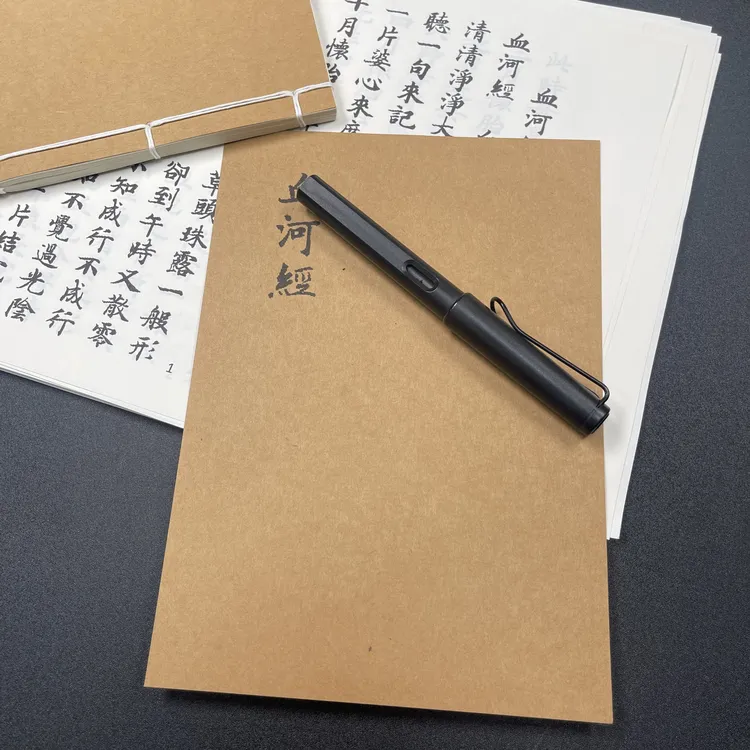 血河
血河經
清清淨淨大
聽一句來記
一片婆心來度
十月懷胎
草頭珠露一般形
卻到午時又散零
知成行不成行
不覺過光陰
片結
1
血河經